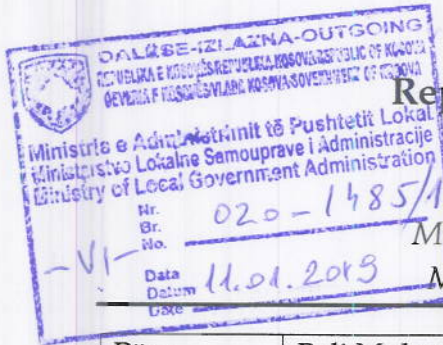 DALËSE-IZLAZNA-OUTGOING
REPUBLIKA E KOSOVËS-REPUBLIKA KOSOVA-REPUBLIC OF KOSOVA
QEVERIA E KOSOVËS/VLADA KOSOVA/GOVERNMENT OF KOSOVA
Ministria e Administrimit të Pushtetit Lokal
Ministarstvo Lokalne Samouprave i Administracije
Ministry of Local Government Administration
Re
Nr.
Br.
No.
020-1485/1
-VI-
M
Data
Datum
Date
11.01.2019
M